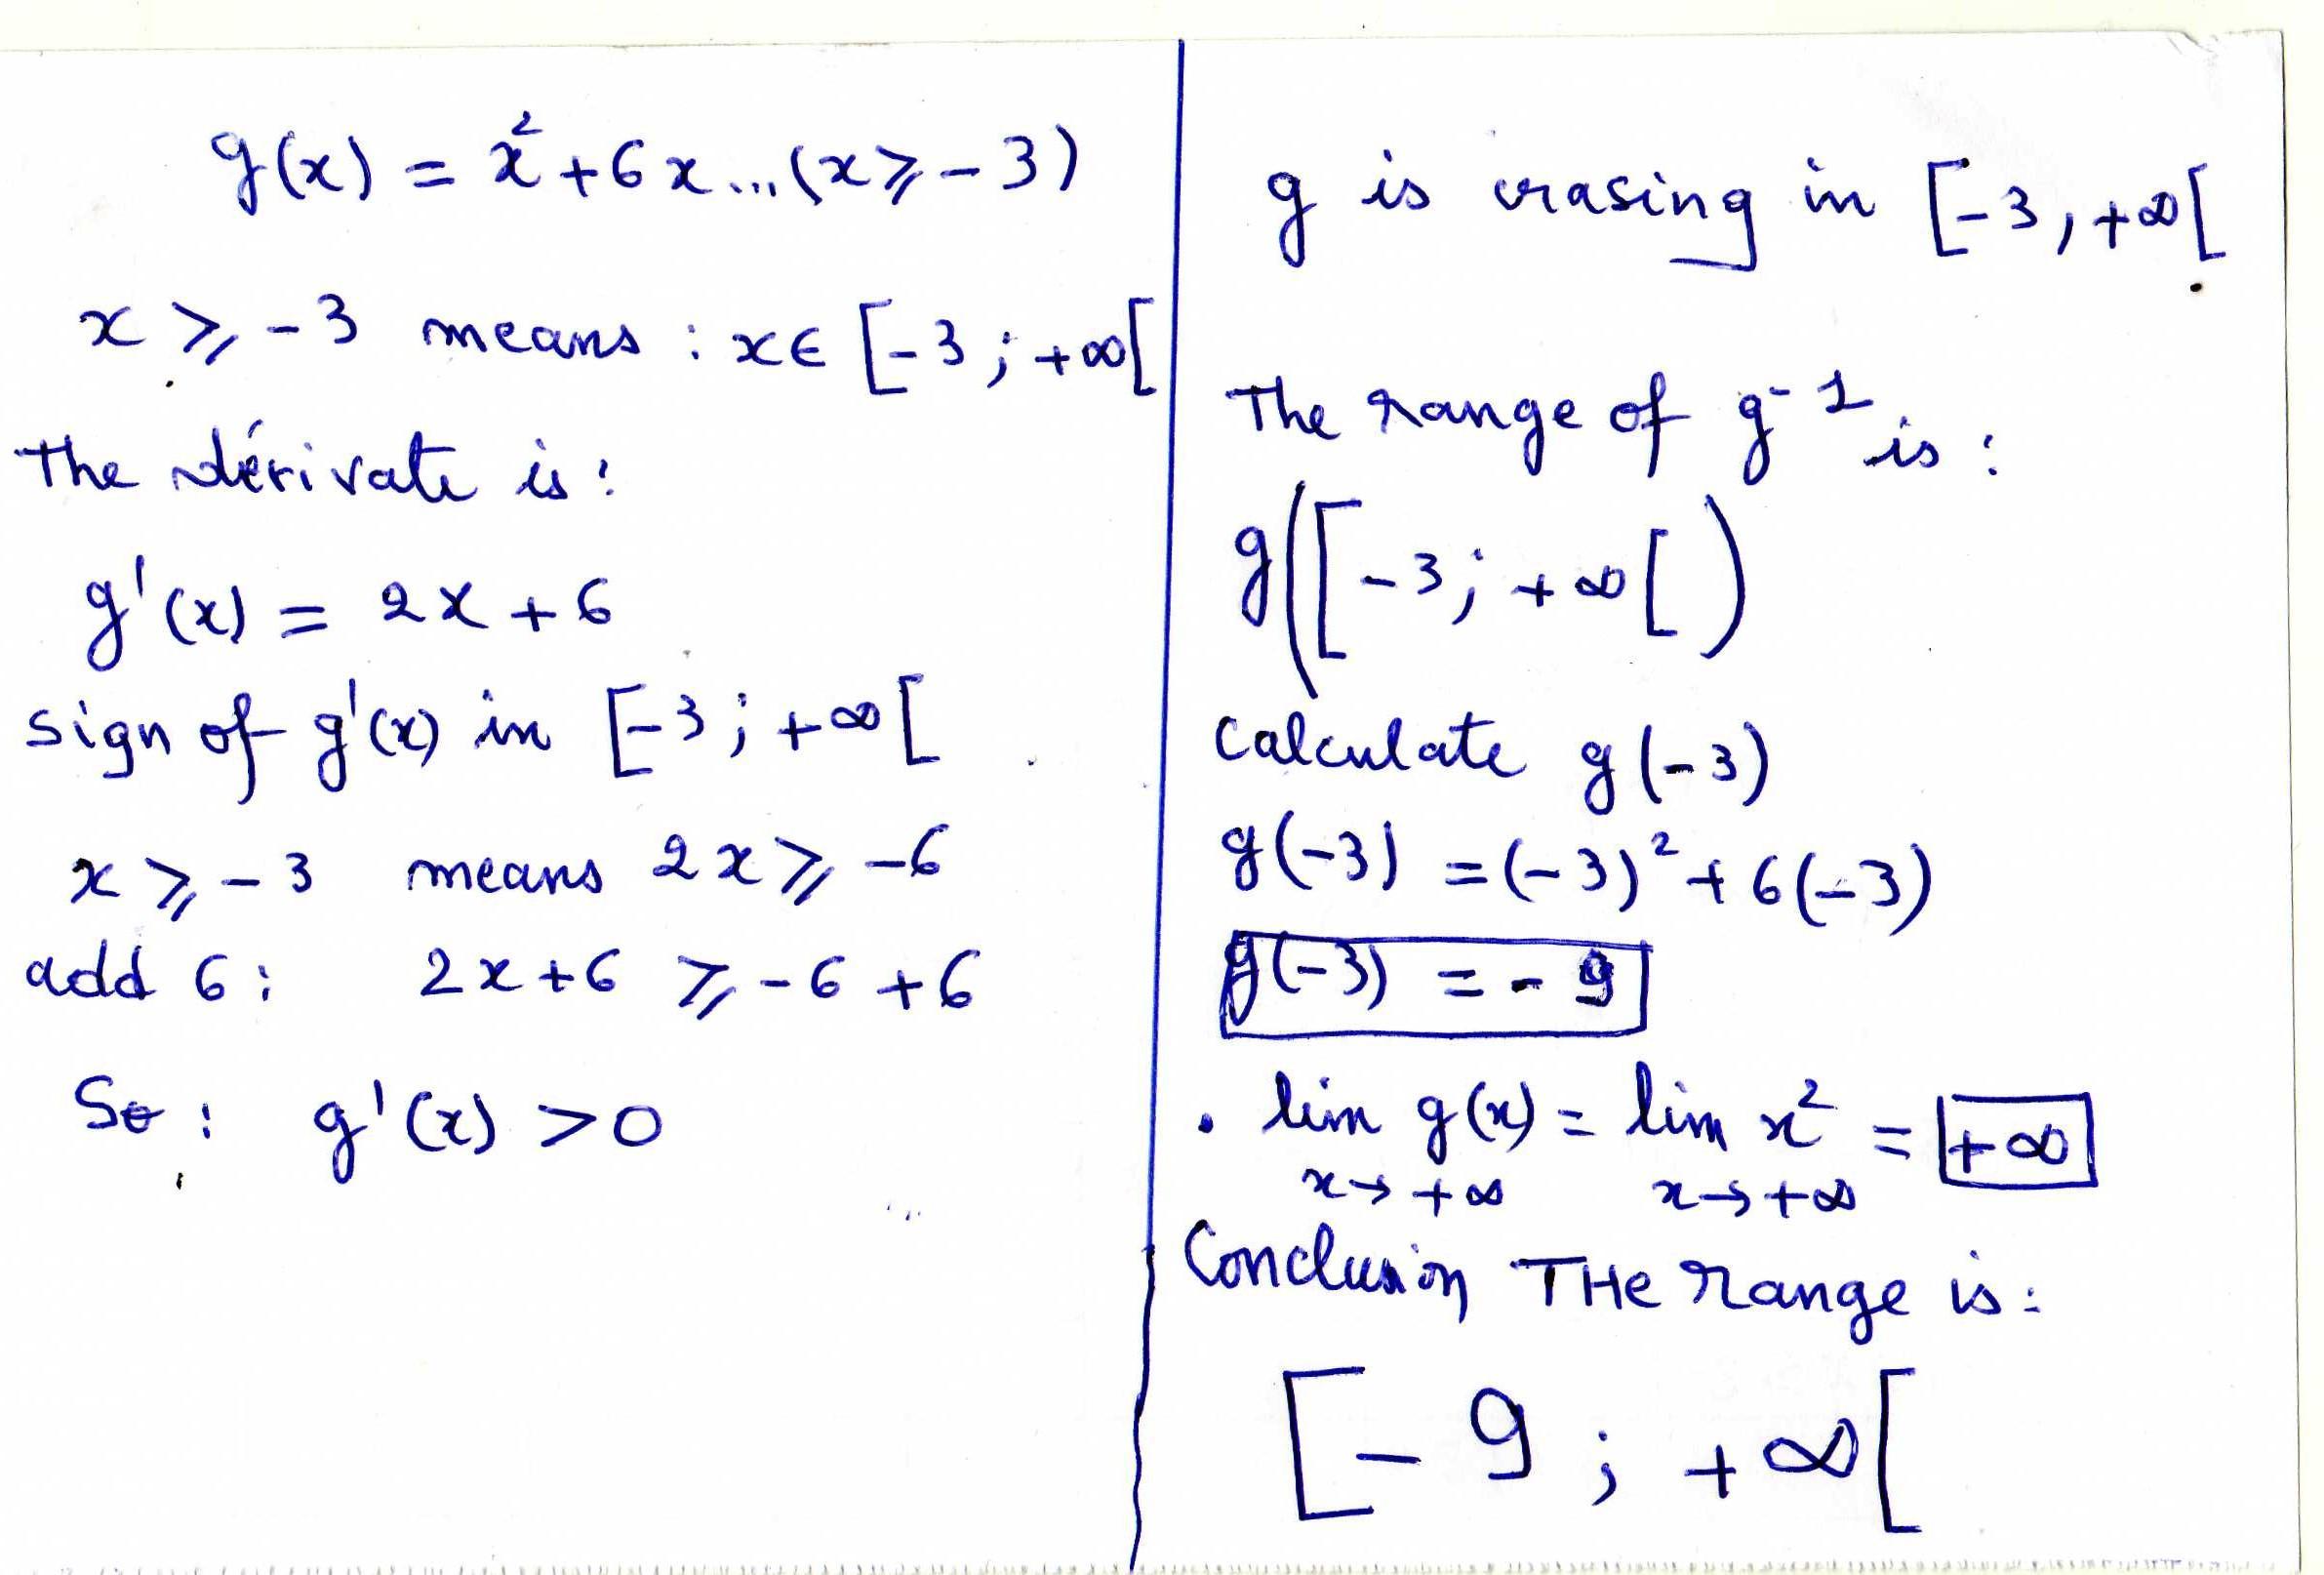 g(x) = x² + 6x ... (x ⩾ -3)
x ⩾ -3 means : x ∈ [-3 ; +∞[
The dérivate is :
g'(x) = 2x + 6
sign of g'(x) in [-3 ; +∞[
x ⩾ -3 means 2x ⩾ -6
add 6 : 2x + 6 ⩾ -6 + 6
So : g'(x) > 0
g is crasing in [-3, +∞[
The range of g⁻¹ is :
g([-3 ; +∞[)
calculate g(-3)
g(-3) = (-3)² + 6(-3)
g(-3) = -9
• lim g(x) = lim x² = +∞
x→+∞ x→+∞
Conclusion THe range is :
[-9 ; +∞[